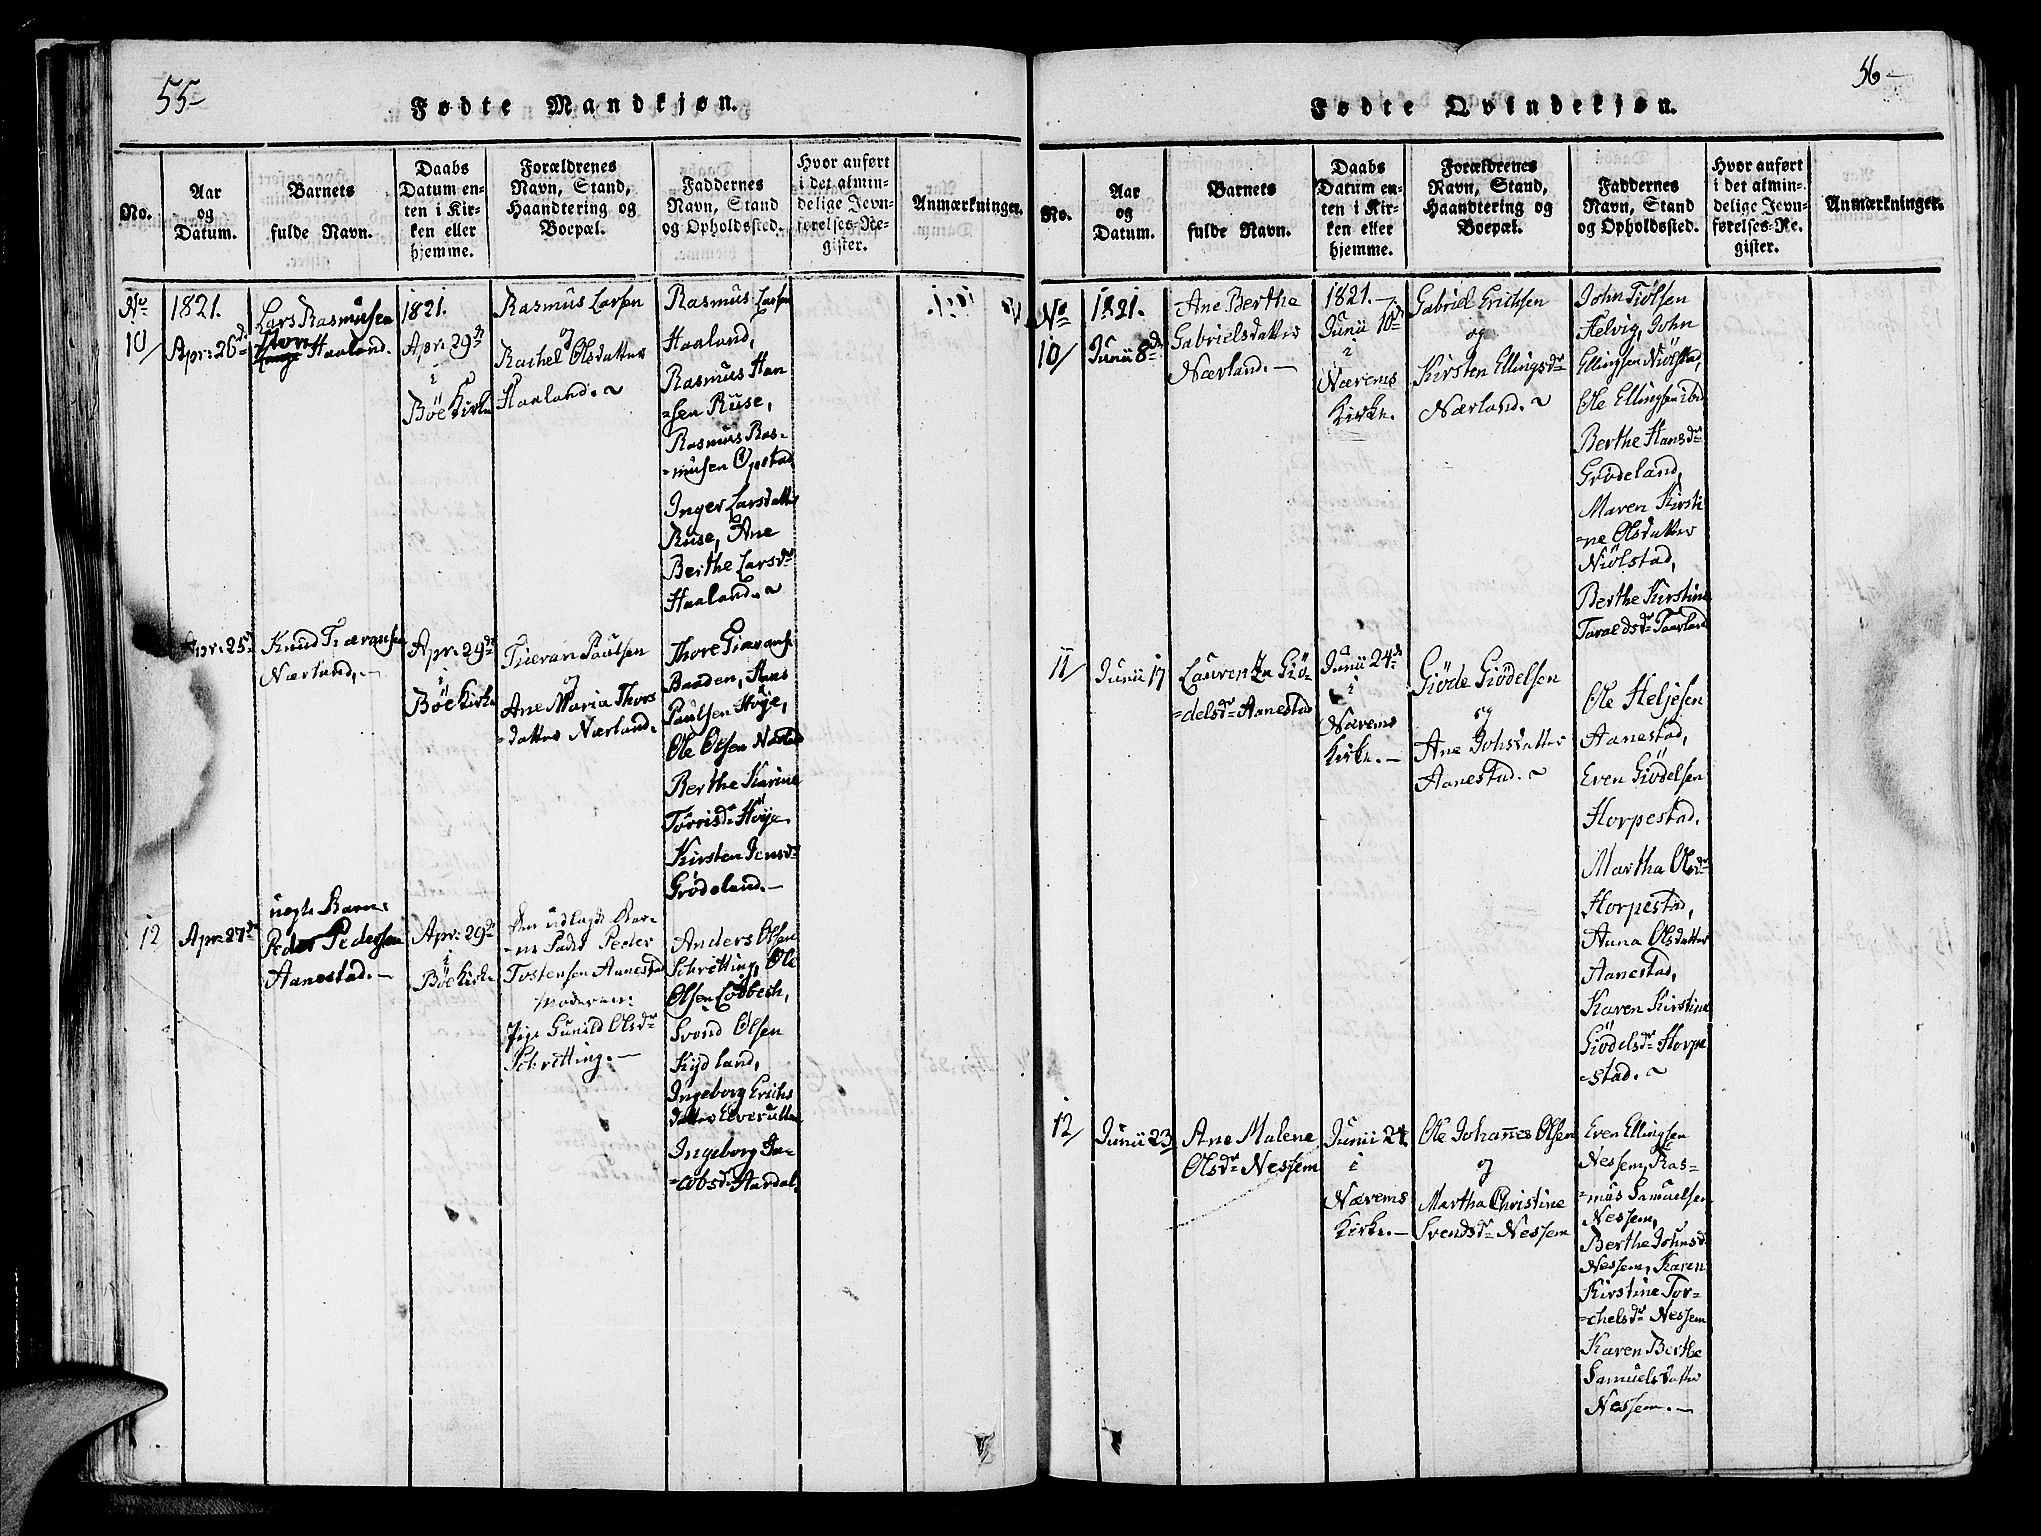 55-
Fødte Mandkjøn.
No.
Aar
og
Datum.
Barnets
fulde Navn.
Daabs
Datum en-
ten i Kir-
ken eller
hjemme.
Forældrenes
Navn, Stand,
Haandtering og
Boepæl.
Faddernes
Navn, Stand
og Opholdssted.
Hvor anført
i det almin-
delige Jevn-
førelses-Re-
gister.
Anmærkninger.
No
10/
1821.
Apr: 26d
Lars Rasmusen
Haaland.
1821.
Apr: 29de
i
Böe Kirke
Rasmus Larsen
og
Rachel Olsdatter
Haaland. ~
Rasmus Larsen
Haaland,
Rasmus Han
=sen Ruse,
Rasmus Ras-
=musen Opstad
Inger Larsdatter
Ruse, Ane
Berthe Larsdr
Haaland. ~
Apr: 25d
Knud Tiæransen
Nærland. -
Apr: 29de
i
Böe Kirke
Tiæran Paulsen
og
Ane Maria Thors
=datter Nærland.
Thore Tiæransen
Braaden, Hans
Paulsen Höje,
Ole Olsen Nærland
Berthe Karine
Torrisdr Höje.
Kirsten Jensdr
Grödeland. -
12
Apr: 27de
uægte Barn:
Peder Pedersen
Aanestad. -
Apr: 29de
i
Böe Kirke
Den udlagde Bar-
=ne Fader Peder
Tostensen Aanestad
Moderen:
Pige Gunild Olsdr
Schretting. -
Anders Olsen
Schretting, Ole
Olsen Lobbesh,
Svend Olsen
Kydland,
Ingeborg Erichs
datter Elverutten
Ingeborg Ja-
=cobsdr Aardal.
56-
Fødte Qvindekjøn.
No.
Aar
og
Datum.
Barnets
fulde Navn.
Daabs
Datum en-
ten i Kir-
ken eller
hjemme.
Forældrenes
Navn, Stand,
Haandtering og
Boepæl.
Faddernes
Navn, Stand
og Opholdssted.
Hvor anført
i det almin-
delige Jevn-
førelses-Re-
gister.
Anmærkninger.
No
10/
1821.
Junii 8de
Ane Berthe
Gabrielsdatter
Nærland. -
1821. -
Junii 10de
i
Nærems
Kirke.
Gabriel Erichsen
og
Kirsten Ellingsdr
Nærland. ~
John Tiölsen
Helvig, John
Ellingsen Niölstad,
Ole Ellingsen ibid
Berthe Hansdr
Grödeland,
Maren Kirsti
=ne Olsdatter
Niölstad,
Berthe Kirstine
Taraldsdr Taarland
11
Junii 17
Laurenza Giö-
=delsdr Aanestad
Junii 24de
i
Nærems
Kirke. -
Giöde Giödelsen
og
Ane Johsdatter
Aanestad. ~
Ole Heljesen
Aanestad,
Even Giödelsen
Horpestad,
Martha Olsdr
Horpestad,
Anna Olsdatter
Aanestad,
Karen Kirstine
Giödelsdr Horpe
=stad. ~
12/
Junii 23
Ane Malene
Olsdr Nessem
Junii 24.
i
Nærems
Kirke. -
Ole Johannes Olsen
og
Martha Christine
Svendsdr Nessem
Even Ellingsen
Nessem, Ras-
=mus Samuelsen
Nessem,
Berthe Johnsd
Nessem, Karen
Kirstine Tor-
=chelsdr Nessem
Karen Berthe
Samuelsdatter
Nessem. -